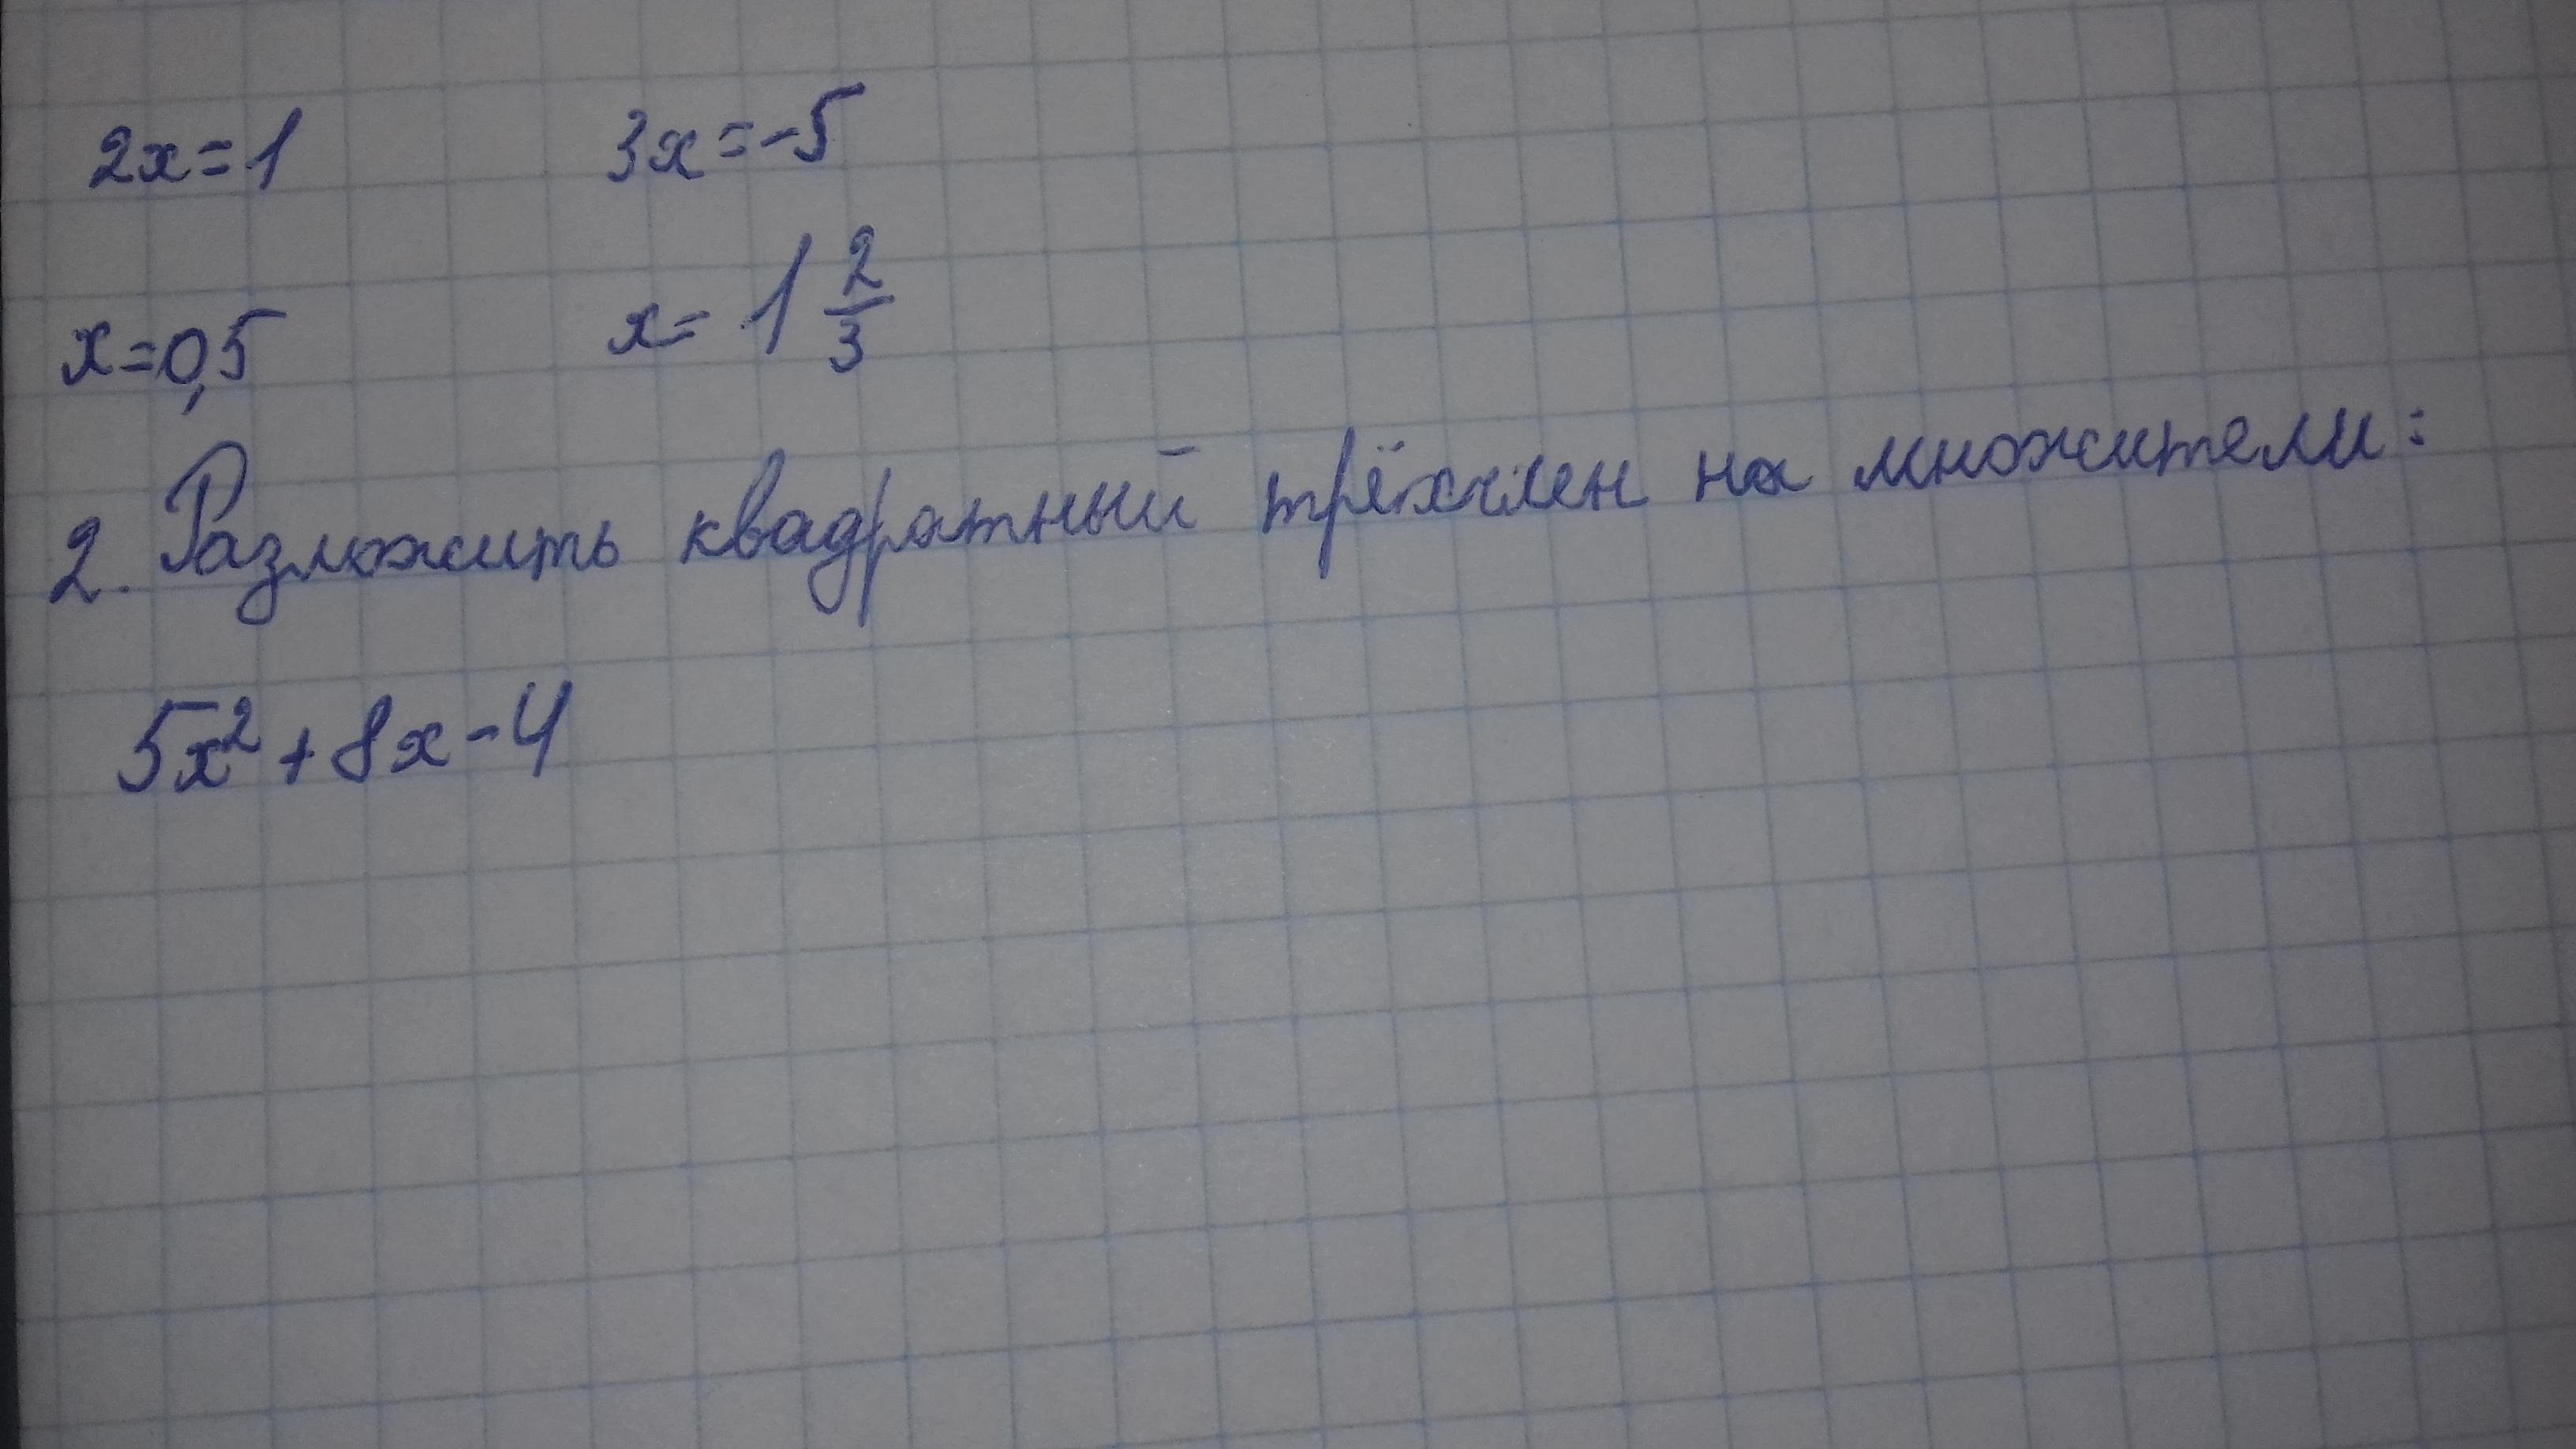 2x=1 3x=-5
x=0,5 x= 1 2/3
2. Разложить квадратный трёхчлен на множители:
5x²+8x-4